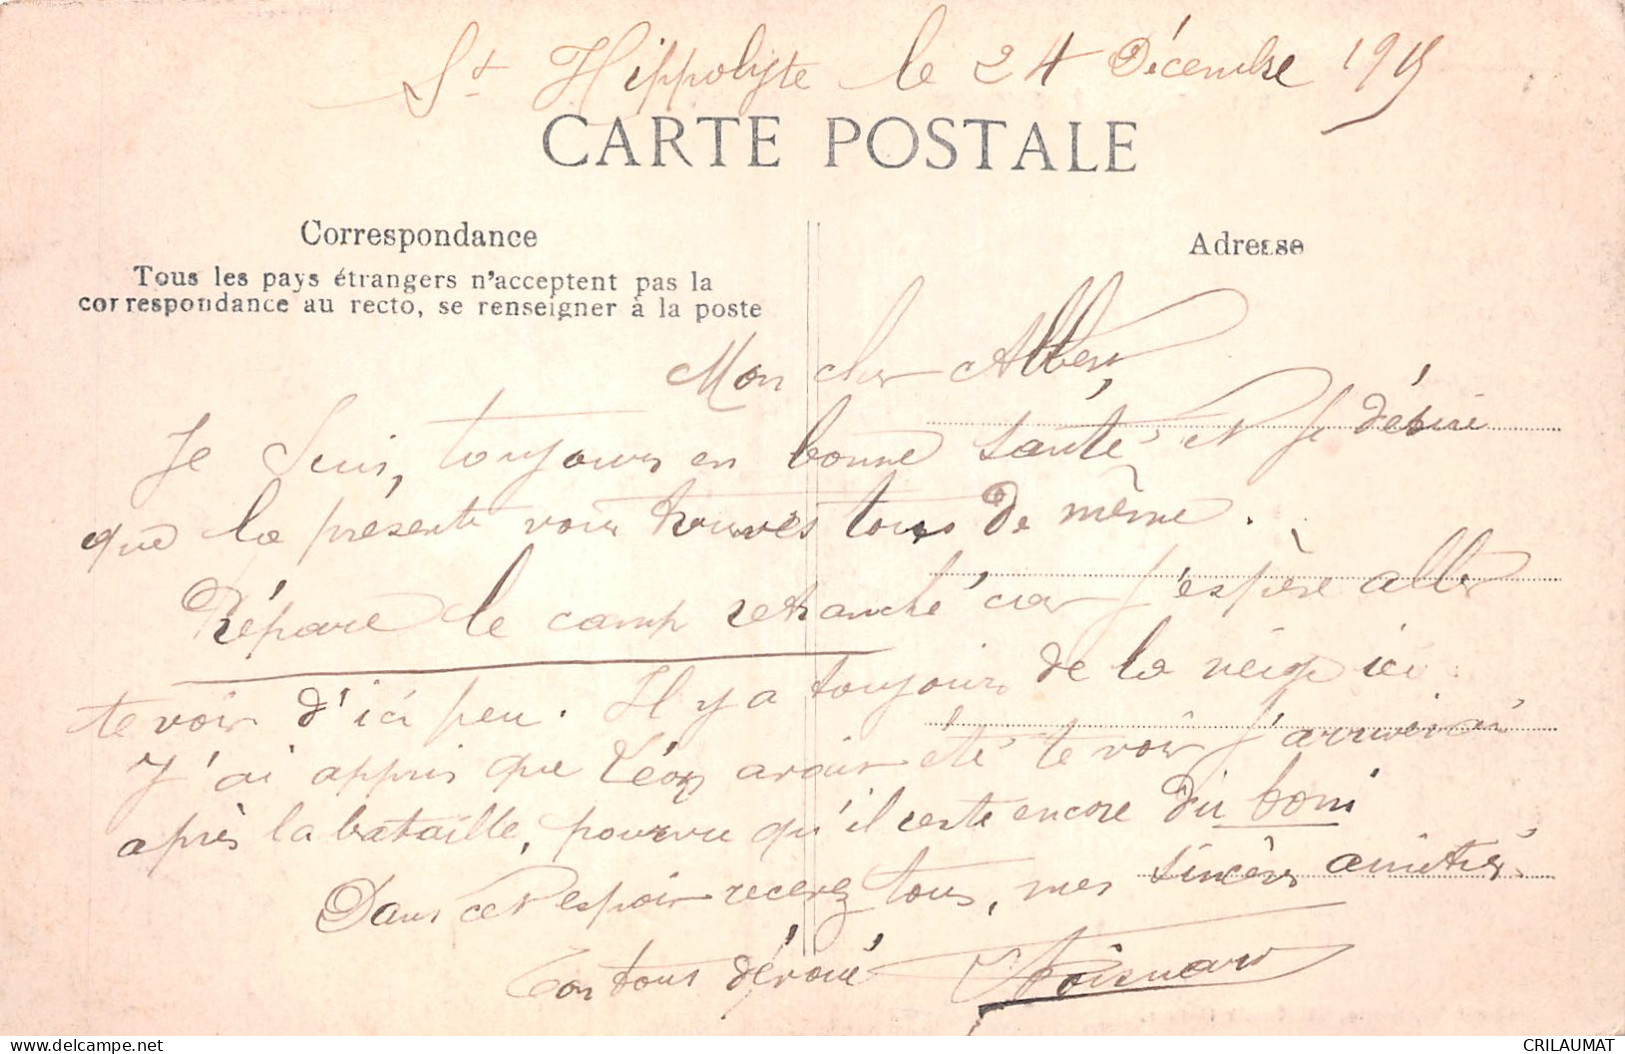 St Hippolyte le 24 Décembre 1915
CARTE POSTALE
Correspondance
Adresse
Tous les pays étrangers n'acceptent pas la
correspondance au recto, se renseigner à la poste
Mon cher Albert
Je suis, toujours en bonne santé et je désire
que la présente vous trouves tous de même.
Répare le camp retranché car j'espère aller
te voir d'ici peu. Il y a toujours de la neige ici
J'ai appris que Léon avait été te voir j'arriverai
après la bataille, pourvu qu'il reste encore du boni
Dans cet espoir recevez tous, mes sincères amitiés.
Ton tous dévoué
CRILAUMAT